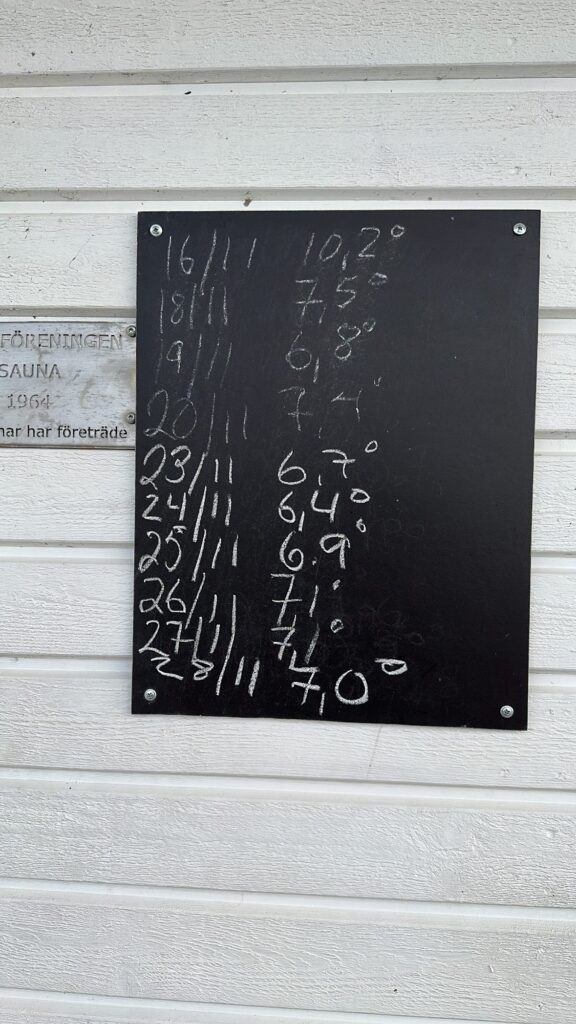 FÖRENINGEN
SAUNA
1964
har företräde
16/11 10,2°
18/11 7,5°
19/11 6,8°
20/11 7,4°
23/11 6,7°
24/11 6,4°
25/11 6.9°
26/11 7,1°
27/11 7,1°
28/11 7,0°